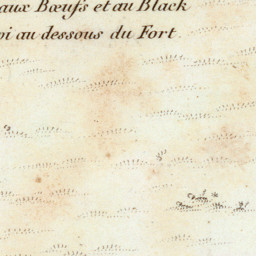 aux Bœufs et au Black
pi au dessous du Fort